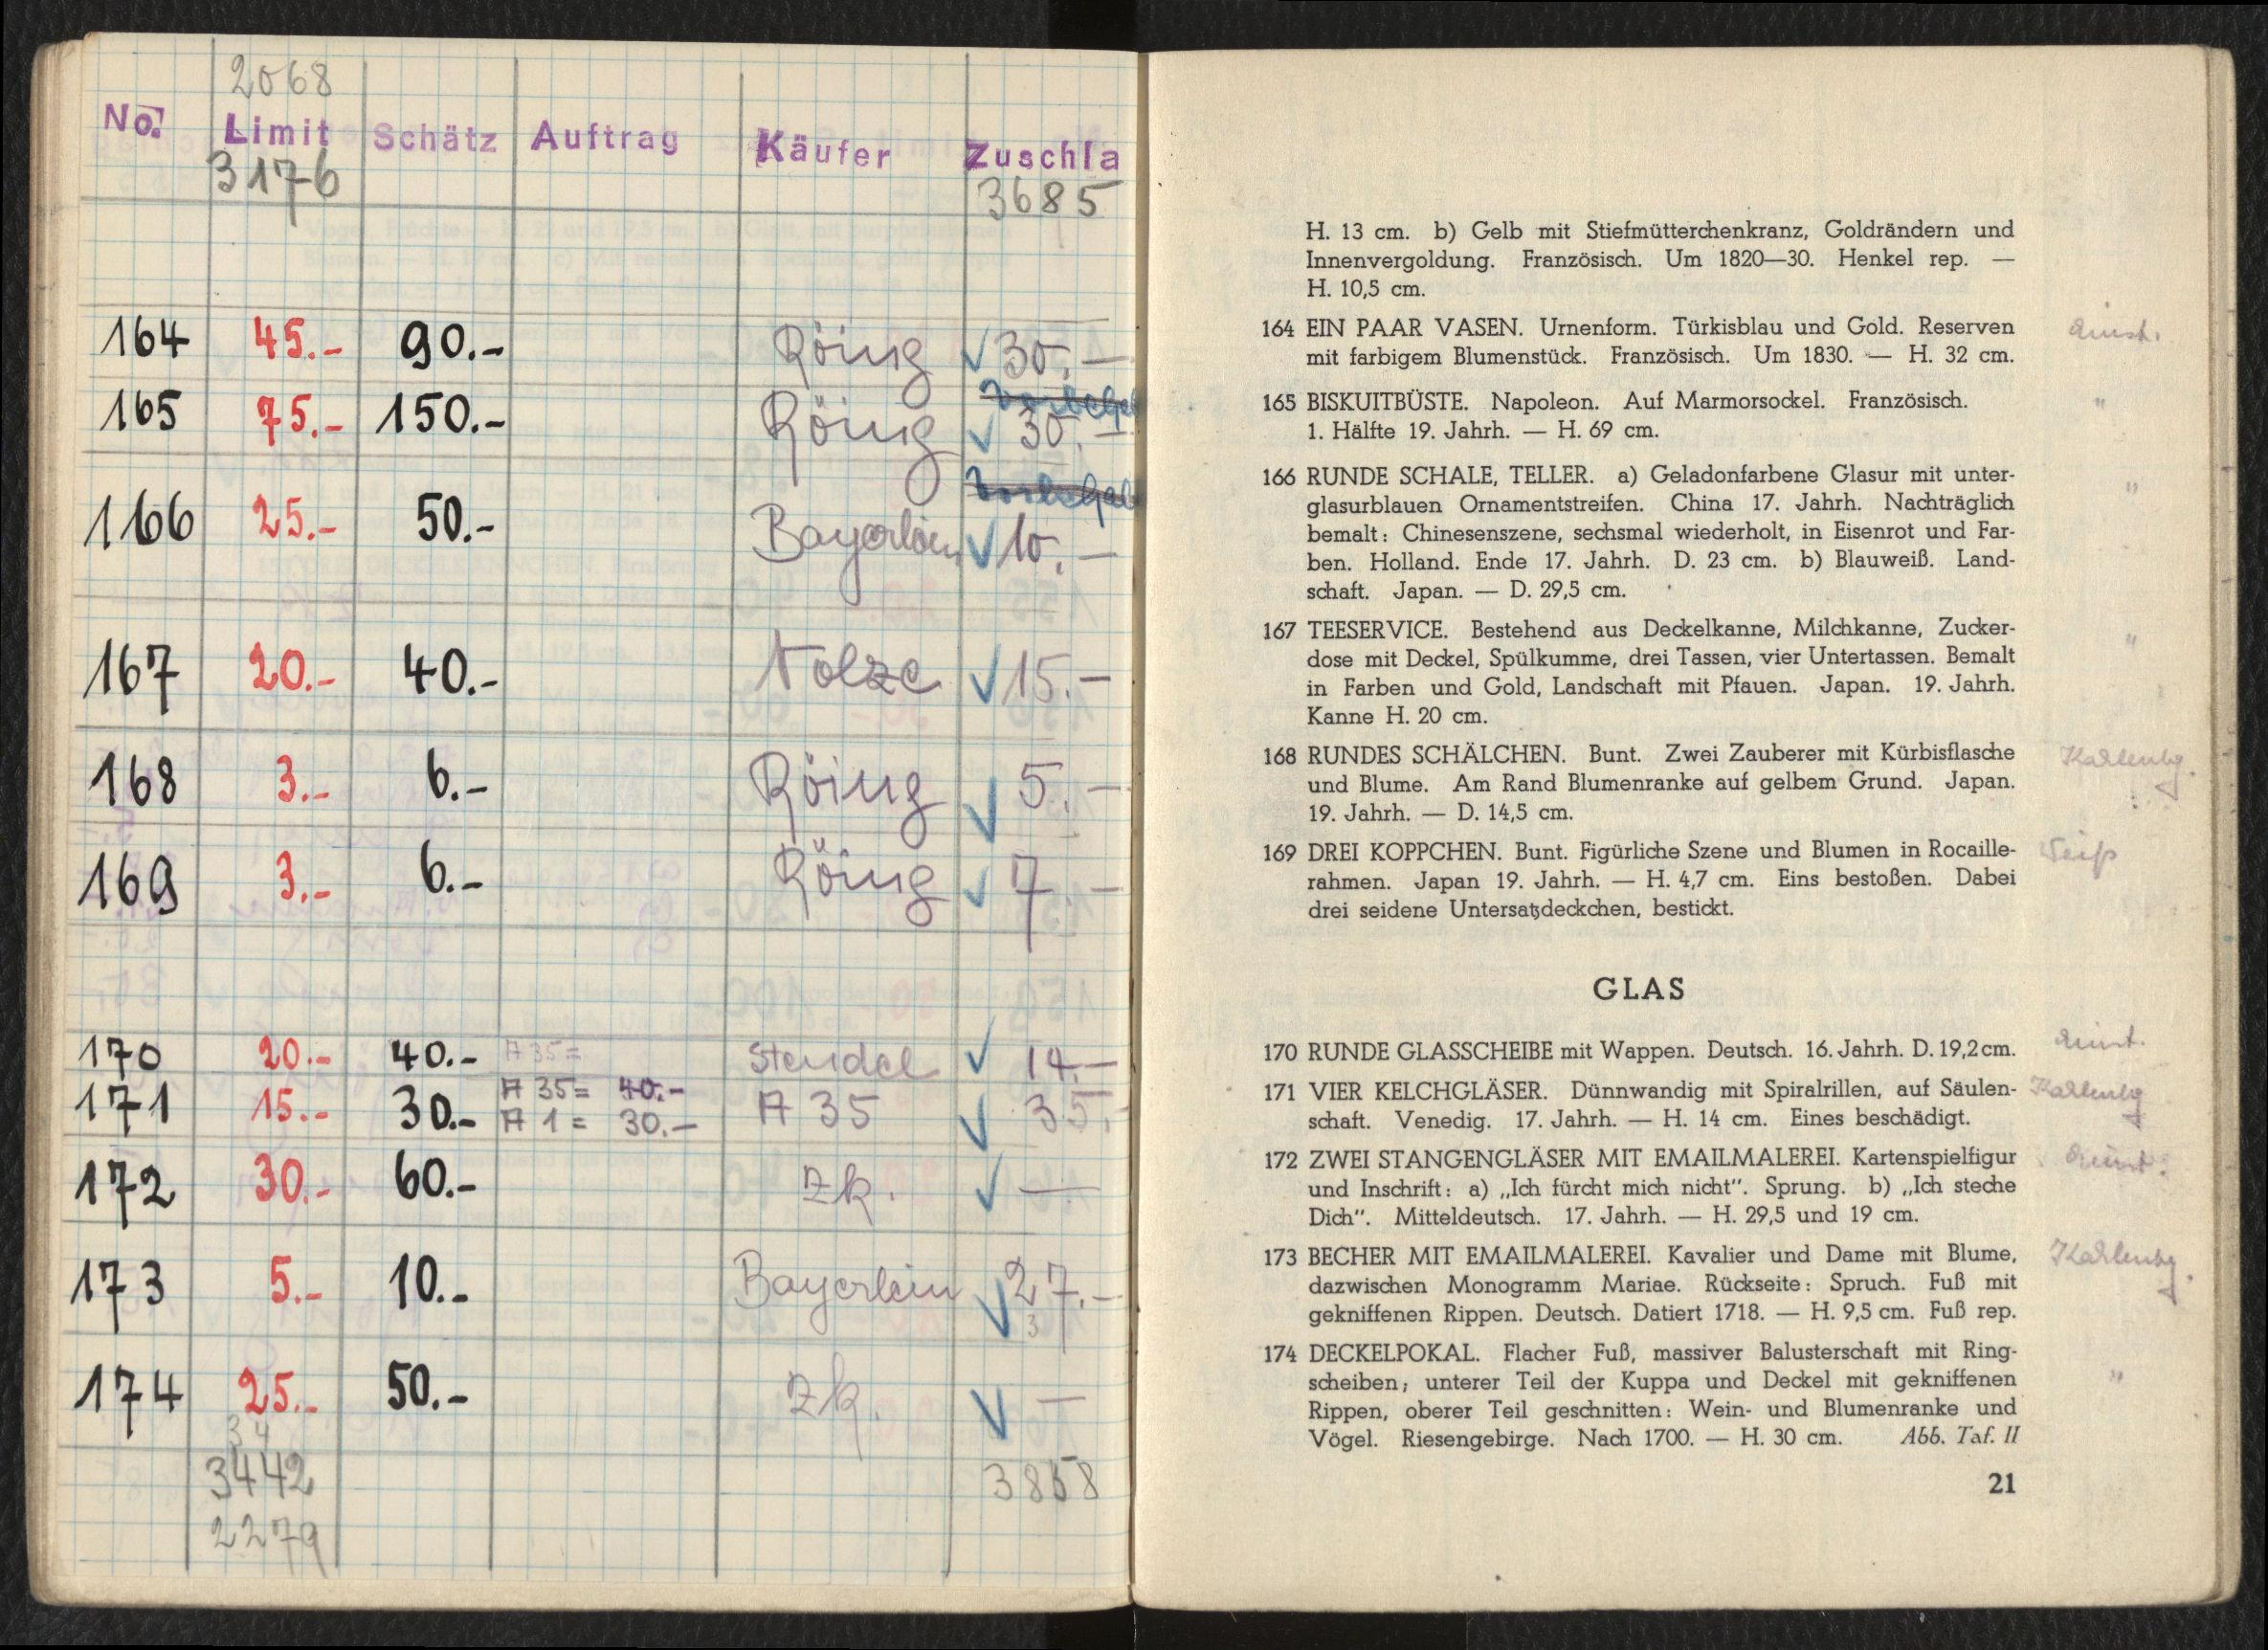 2068
No. Limit Schätz Auftrag Käufer Zuschla
3176 3685
164 45.- 90.- Röing 30.-
165 75.- 150.- Röing 30.-
166 25.- 50.- Bayerlein 10.-
167 20.- 40.- 15.-
168 3.- 6.- Röing 5.-
169 3.- 6.- Röing 7.-
170 20.- 40.- A 35= Stendel 14.-
171 15.- 30.- A 35= 40.- A 35 35.-
A 1= 30.-
172 30.- 60.- zk. —
173 5.- 10.- Bayerlein 27.-
3
174 25.- 50.- zk. —
34
3442 3858
2279
H. 13 cm. b) Gelb mit Stiefmütterchenkranz, Goldrändern und
Innenvergoldung. Französisch. Um 1820—30. Henkel rep. —
H. 10,5 cm.
164 EIN PAAR VASEN. Urnenform. Türkisblau und Gold. Reserven
mit farbigem Blumenstück. Französisch. Um 1830. — H. 32 cm.
165 BISKUITBÜSTE. Napoleon. Auf Marmorsockel. Französisch. "
1. Hälfte 19. Jahrh. — H. 69 cm.
166 RUNDE SCHALE, TELLER. a) Geladonfarbene Glasur mit unter- "
glasurblauen Ornamentstreifen. China 17. Jahrh. Nachträglich
bemalt: Chinesenszene, sechsmal wiederholt, in Eisenrot und Far-
ben. Holland. Ende 17. Jahrh. D. 23 cm. b) Blauweiß. Land-
schaft. Japan. — D. 29,5 cm.
167 TEESERVICE. Bestehend aus Deckelkanne, Milchkanne, Zucker- "
dose mit Deckel, Spülkumme, drei Tassen, vier Untertassen. Bemalt
in Farben und Gold, Landschaft mit Pfauen. Japan. 19. Jahrh.
Kanne H. 20 cm.
168 RUNDES SCHÄLCHEN. Bunt. Zwei Zauberer mit Kürbisflasche
und Blume. Am Rand Blumenranke auf gelbem Grund. Japan.
19. Jahrh. — D. 14,5 cm.
169 DREI KOPPCHEN. Bunt. Figürliche Szene und Blumen in Rocaille- Weiß
rahmen. Japan 19. Jahrh. — H. 4,7 cm. Eins bestoßen. Dabei
drei seidene Untersatzdeckchen, bestickt.
GLAS
170 RUNDE GLASSCHEIBE mit Wappen. Deutsch. 16. Jahrh. D. 19,2 cm.
171 VIER KELCHGLÄSER. Dünnwandig mit Spiralrillen, auf Säulen-
schaft. Venedig. 17. Jahrh. — H. 14 cm. Eines beschädigt.
172 ZWEI STANGENGLÄSER MIT EMAILMALEREI. Kartenspielfigur
und Inschrift: a) „Ich fürcht mich nicht". Sprung. b) „Ich steche
Dich". Mitteldeutsch. 17. Jahrh. — H. 29,5 und 19 cm.
173 BECHER MIT EMAILMALEREI. Kavalier und Dame mit Blume,
dazwischen Monogramm Mariae. Rückseite: Spruch. Fuß mit
gekniffenen Rippen. Deutsch. Datiert 1718. — H. 9,5 cm. Fuß rep.
174 DECKELPOKAL. Flacher Fuß, massiver Balusterschaft mit Ring-
scheiben; unterer Teil der Kuppa und Deckel mit gekniffenen "
Rippen, oberer Teil geschnitten: Wein- und Blumenranke und
Vögel. Riesengebirge. Nach 1700. — H. 30 cm. Abb. Taf. II
21